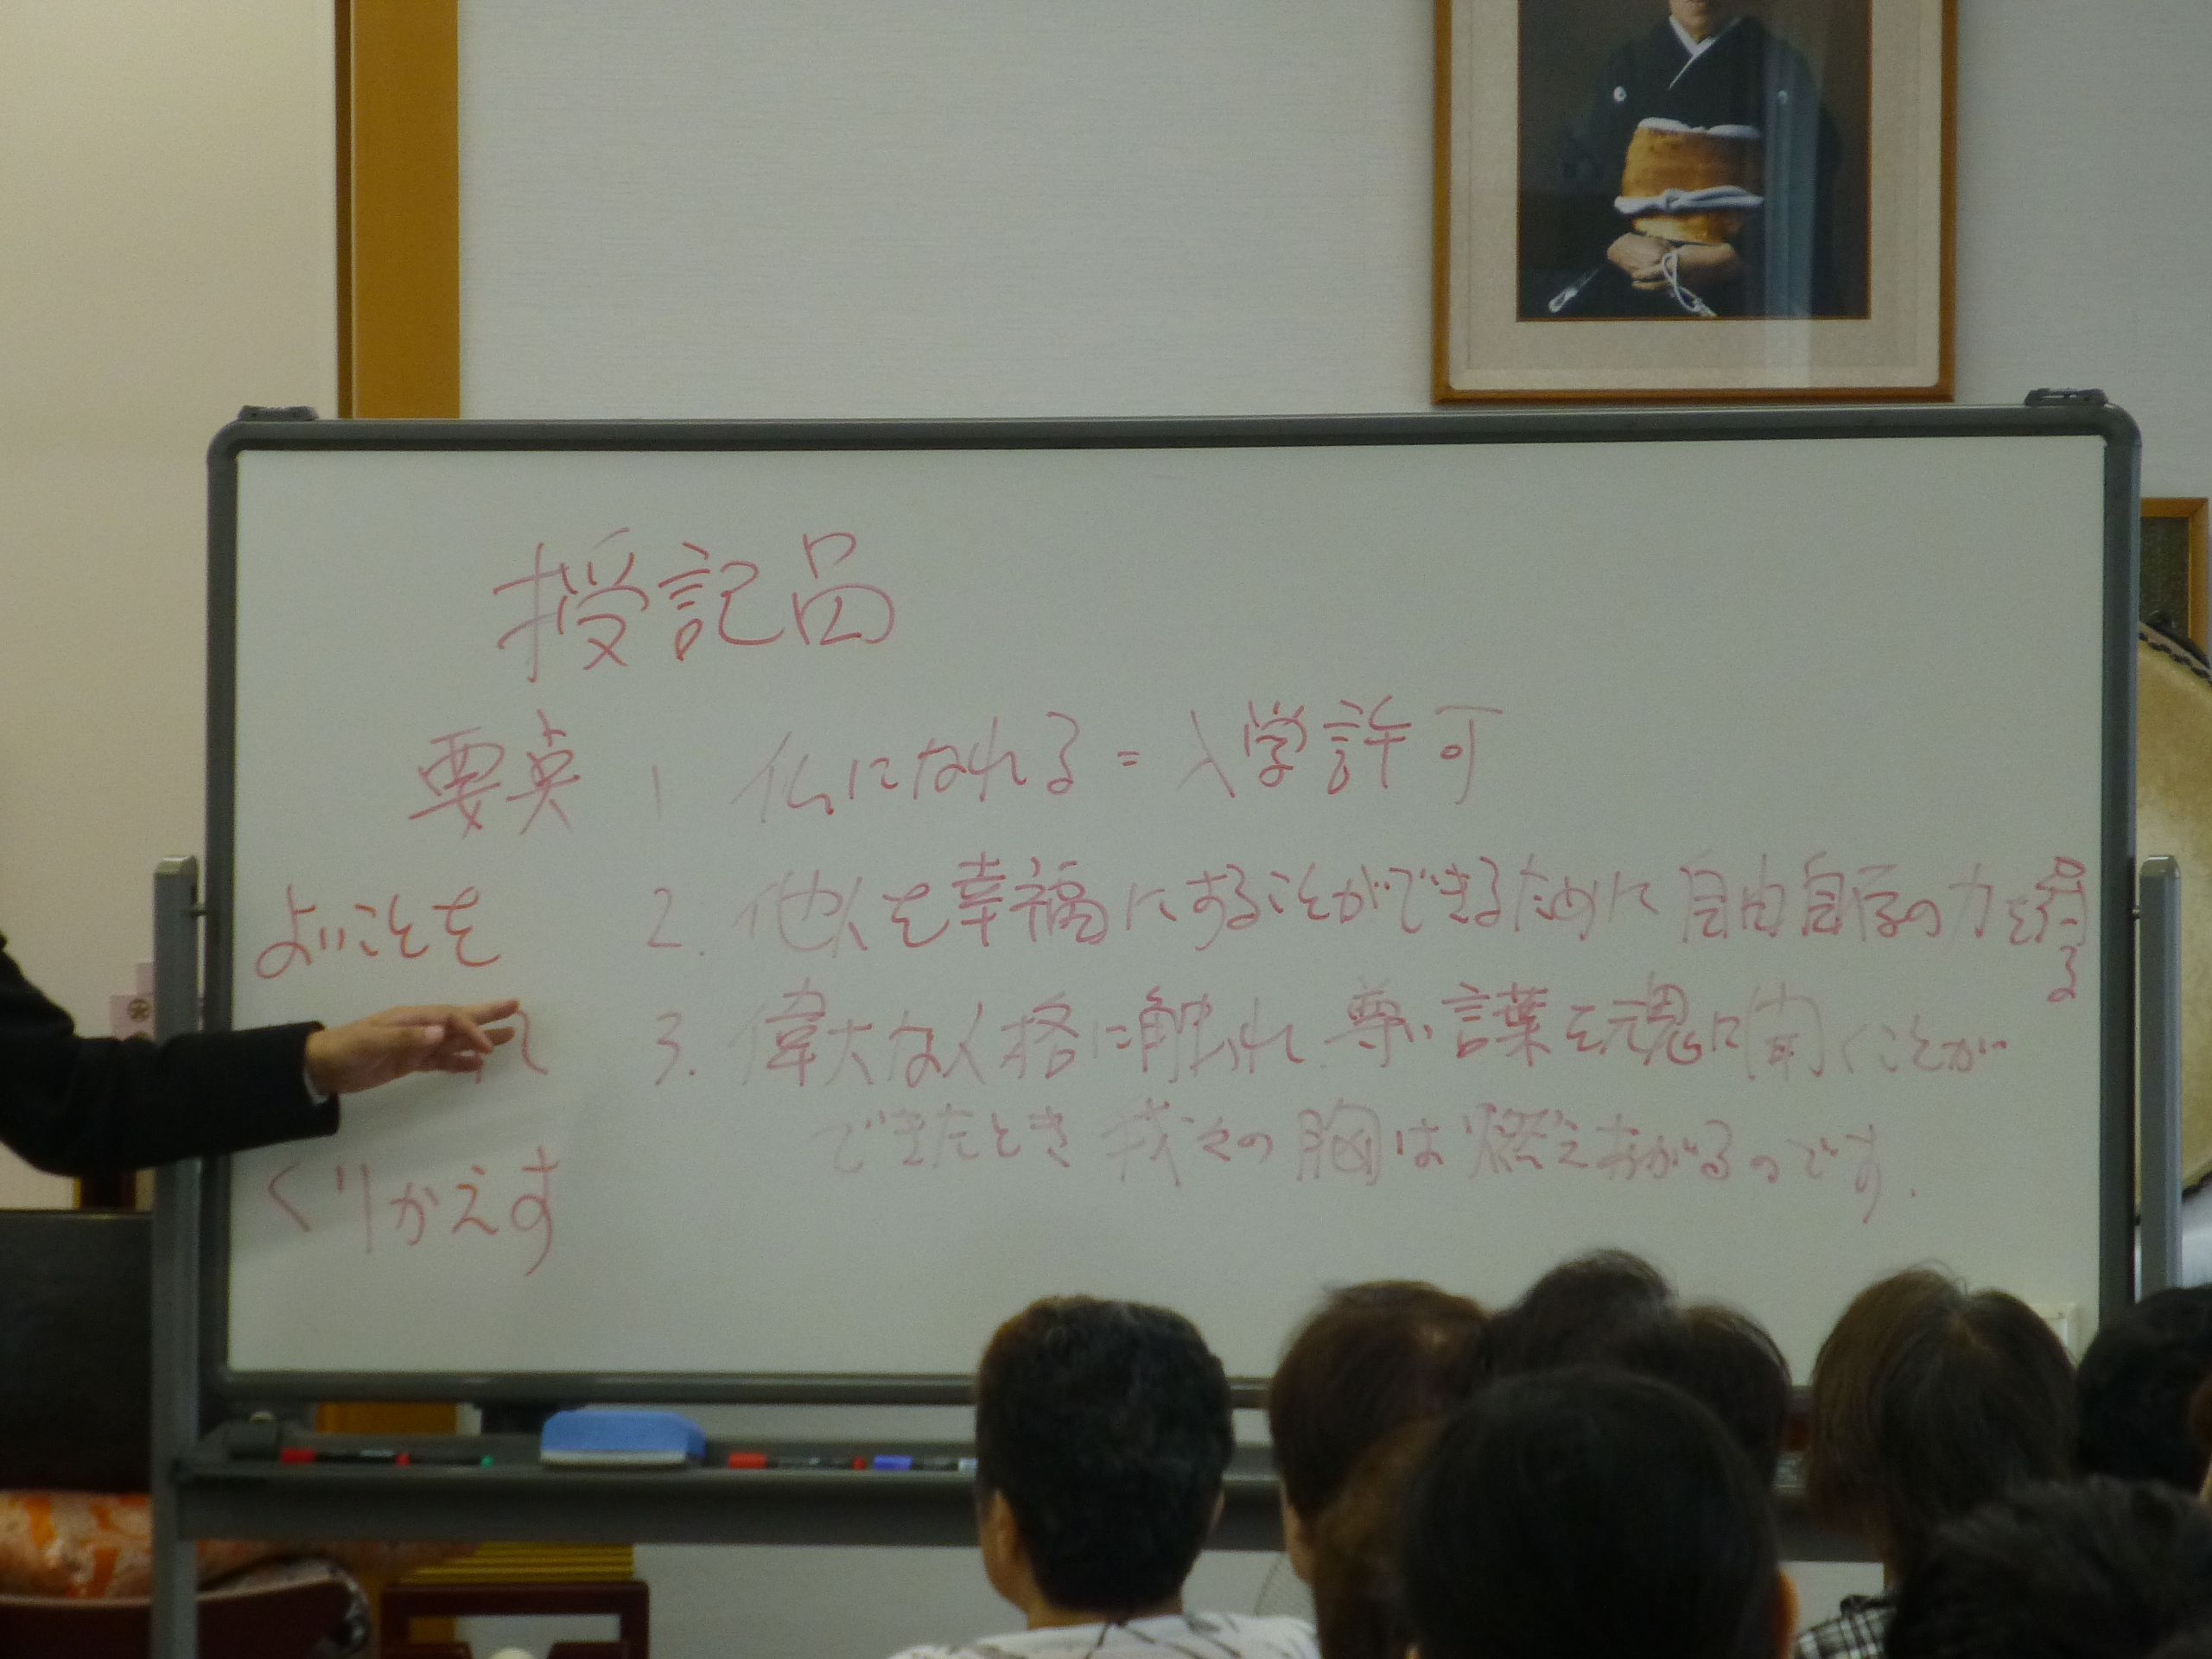 授記品
要点 1 仏になれる = 入学許可
2. 他人を幸福にすることができるために自由自在の力を得る
3. 偉大な人格に触れ 尊い言葉を魂に聞くことが
できたとき 我々の胸は燃えあがるのです.
よいことを
くりかえす